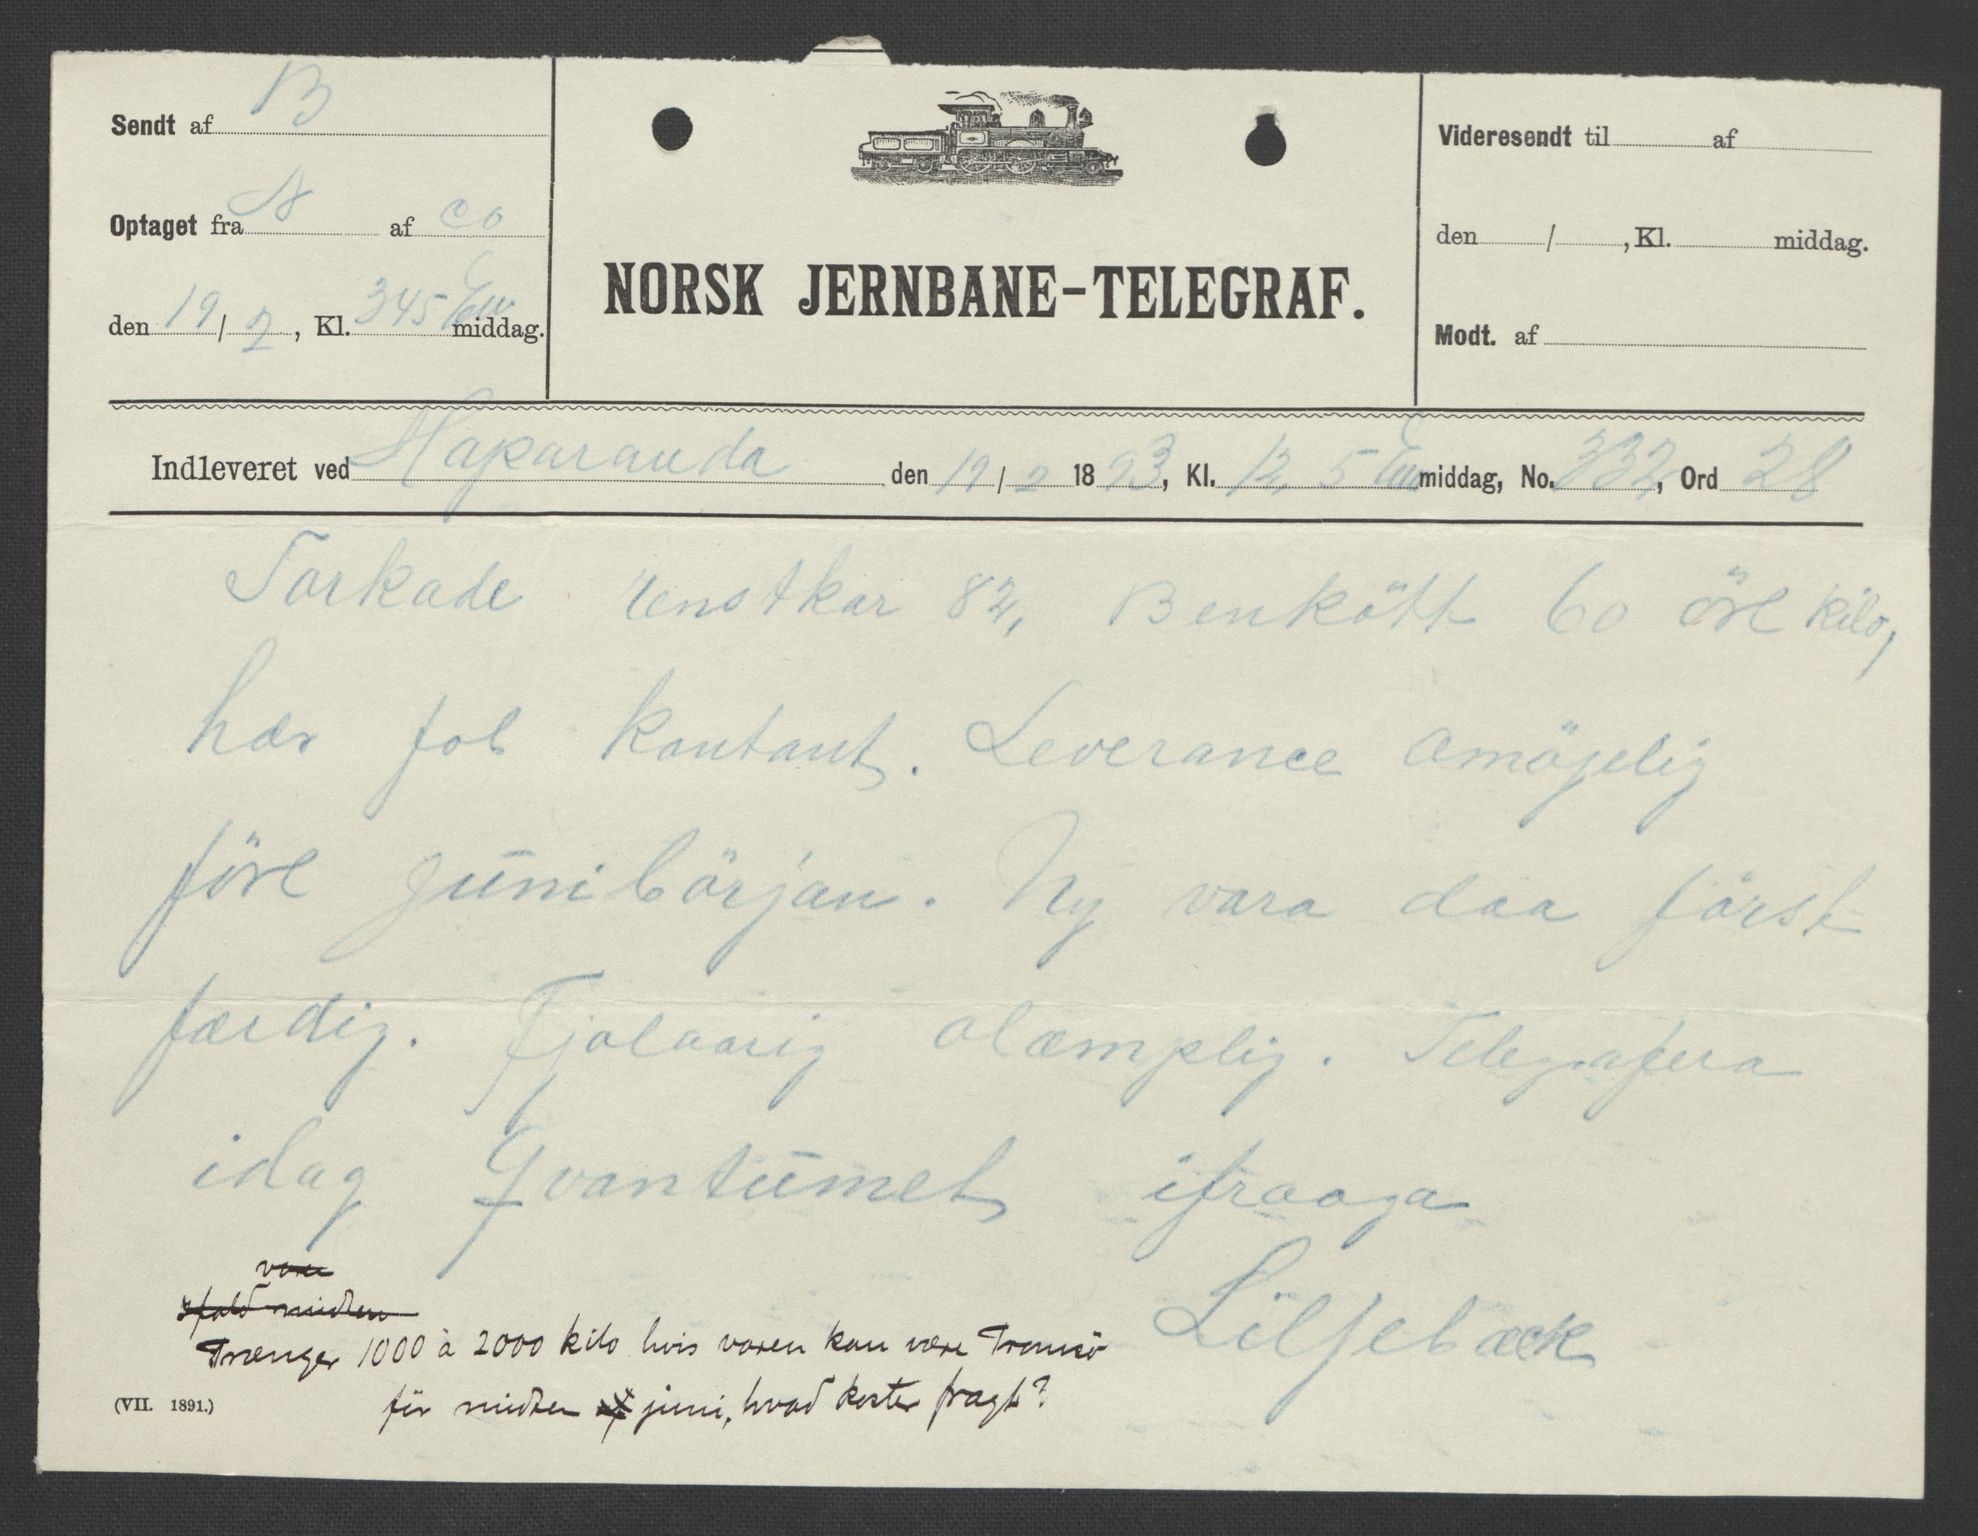 Sendt af B
Optaget fra A af CO
den 19/2, Kl. 345 Em middag.
NORSK JERNBANE-TELEGRAF.
Videresendt til af
den / , Kl. middag.
Modt. af
Indleveret ved Haparanda den 19/2 1893, Kl. 12,5 Em middag, No. 332, Ord 28
Torkade renstkar 82, Benkött 60 öre kilo,
hær fob kontant. Leverance omöjelig
före junibörjan. Ny vara daa först
færdig. Fjolaarig olæmplig. Telegrafera
idag Qvantumet ifraaga
Liljebæck
vare
ifald midten
Trænger 1000 à 2000 kilo hvis varen kan være Tromsö
för midten af juni, hvad koster fragt?
(VII. 1891.)